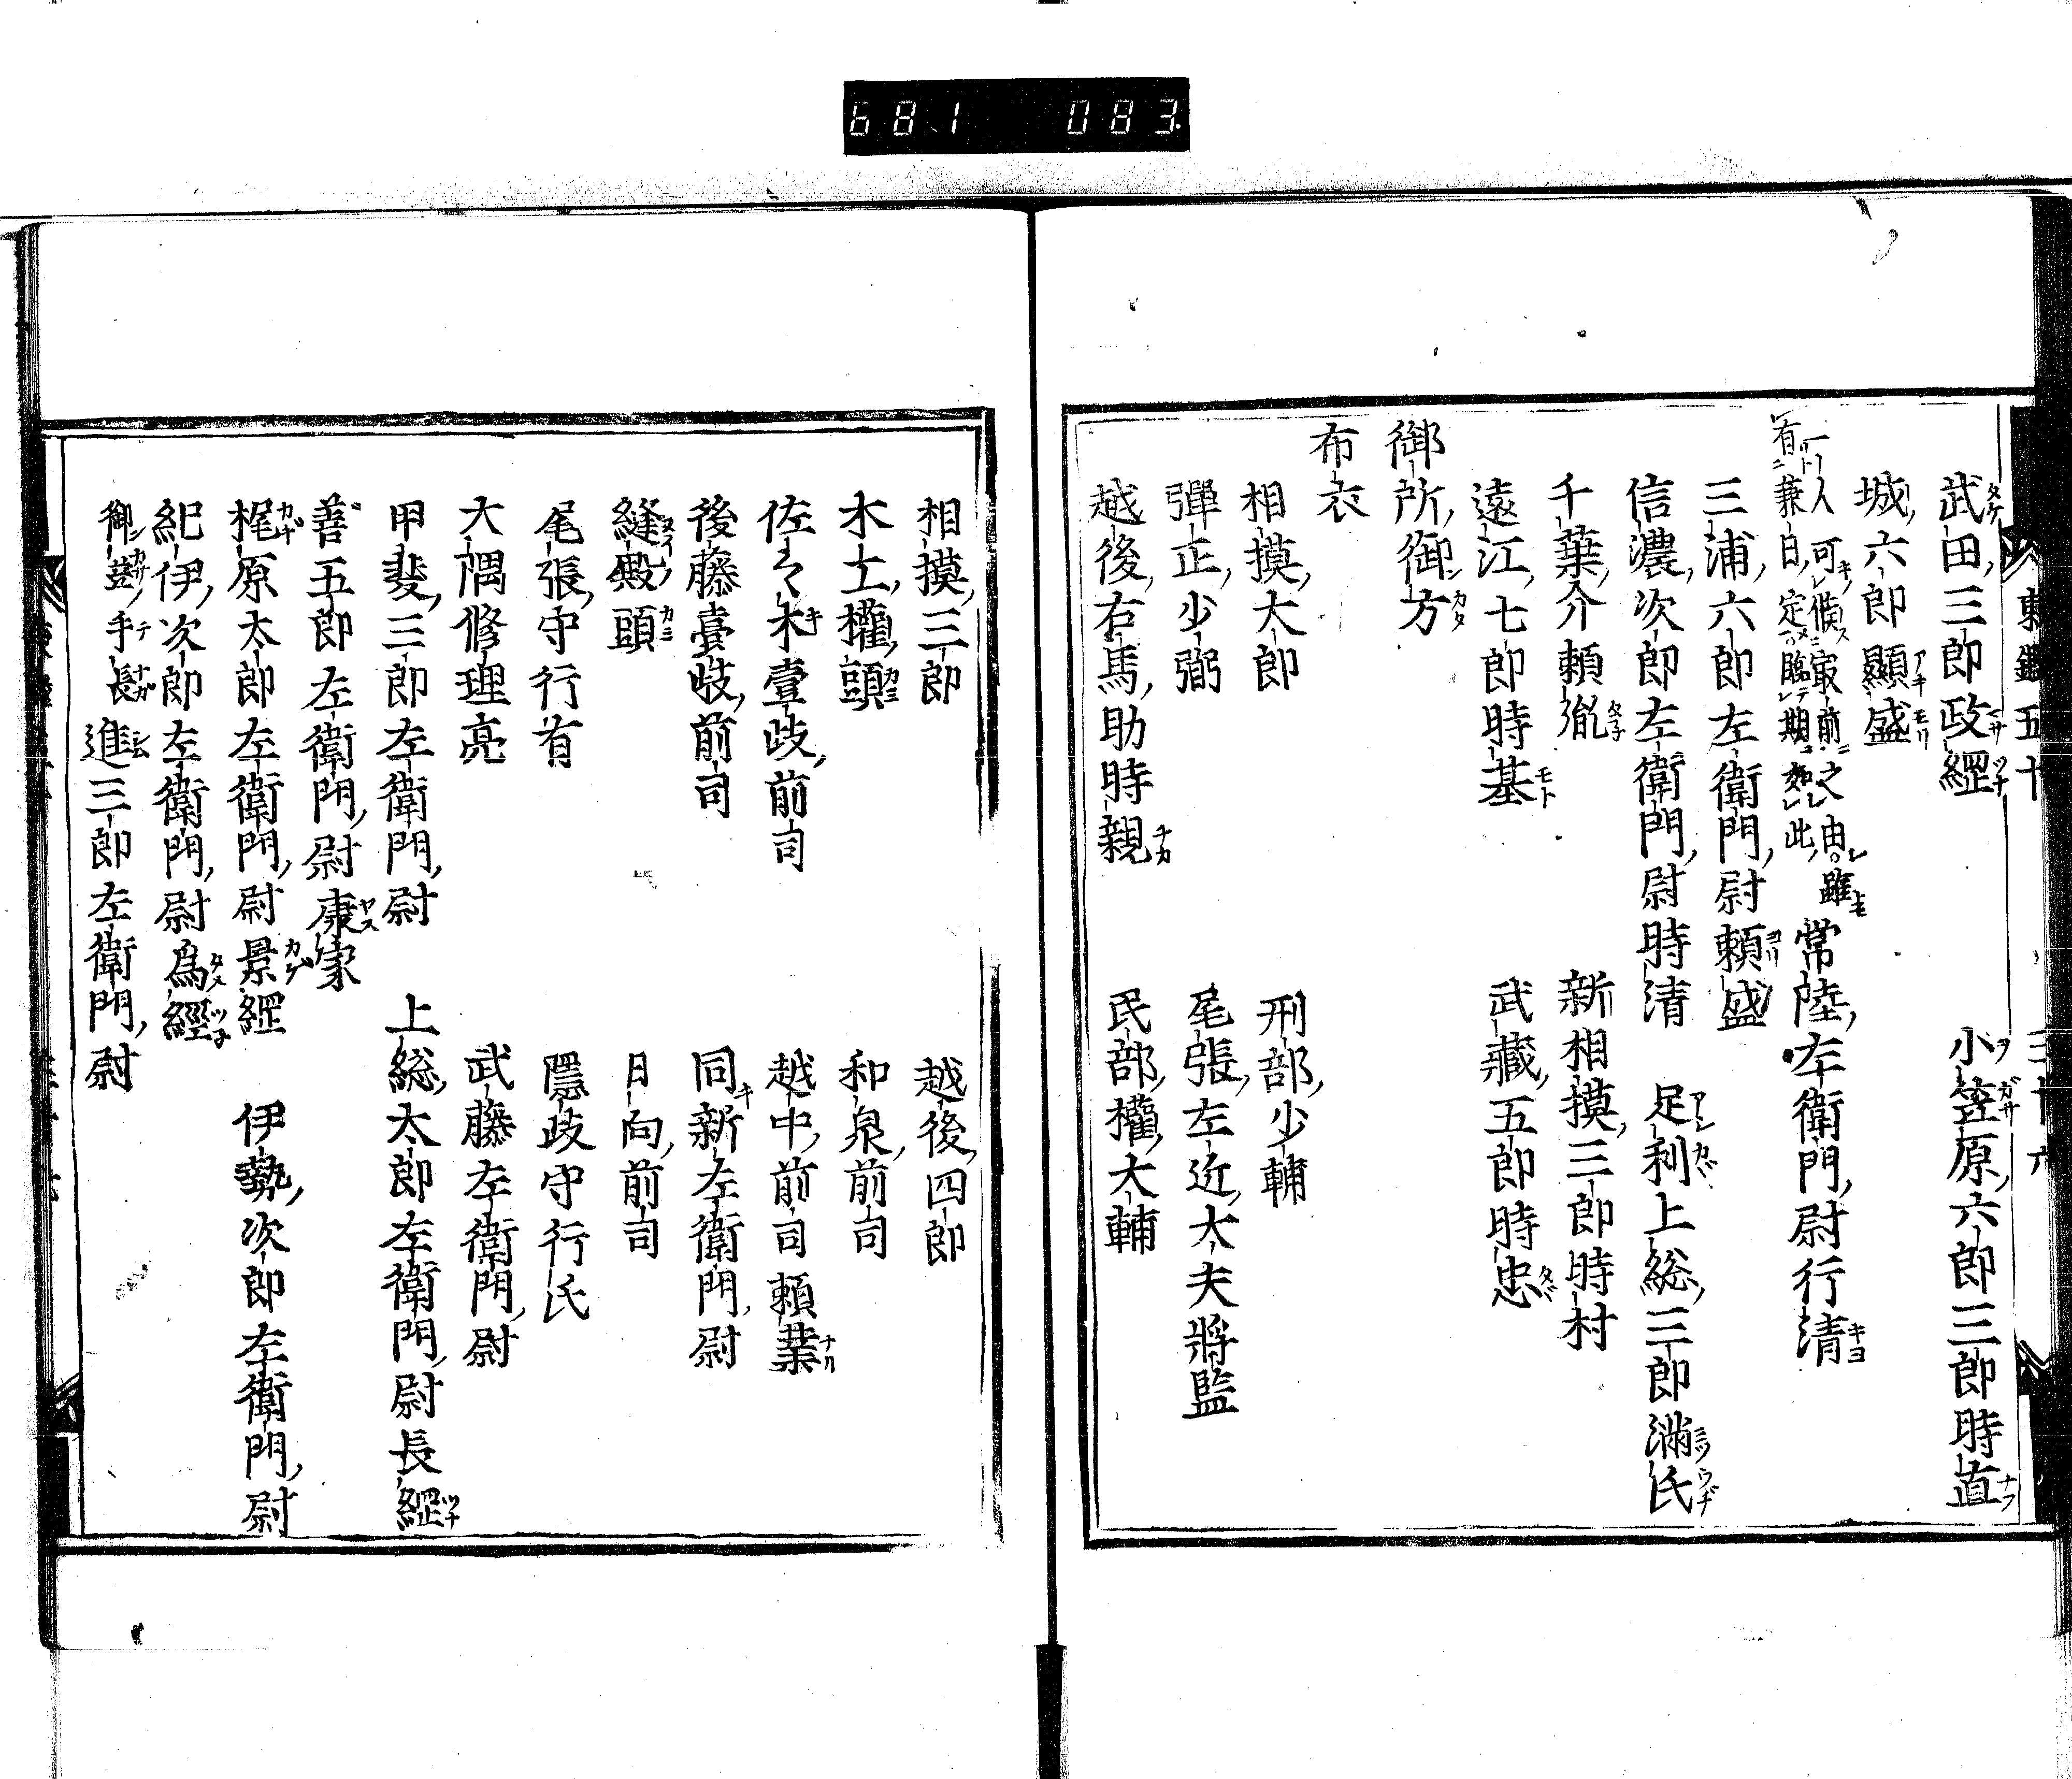 681 083.
東鑑五十 三十六
武田三郎政綱 小笠原六郎三郎時直
城六郎顯盛
一人可候冣前之由雖
有兼日定臨期如此 常陸左衛門尉行清
三浦六郎左衛門尉頼盛
信濃次郎左衛門尉時清 足利上総三郎滿氏
千葉介頼胤 新相摸三郎時村
遠江七郎時基 武藏五郎時忠
御所御方
布衣
相摸大郎 刑部少輔
彈正少弼 尾張左近大夫將監
越後右馬助時親 民部權大輔
相摸三郎 越後四郎
木工權頭 和泉前司
佐々木壹岐前司 越中前司頼業
後藤壹岐前司 同新左衛門尉
縫殿頭 日向前司
尾張守行有 隱岐守行氏
大隅修理亮 武藤左衛門尉
甲斐三郎左衛門尉 上総太郎左衛門尉長經
善五郎左衛門尉康家
梶原太郎左衛門尉景綱 伊勢次郎左衛門尉
紀伊次郎左衛門尉爲經
御簦手長 進三郎左衛門尉